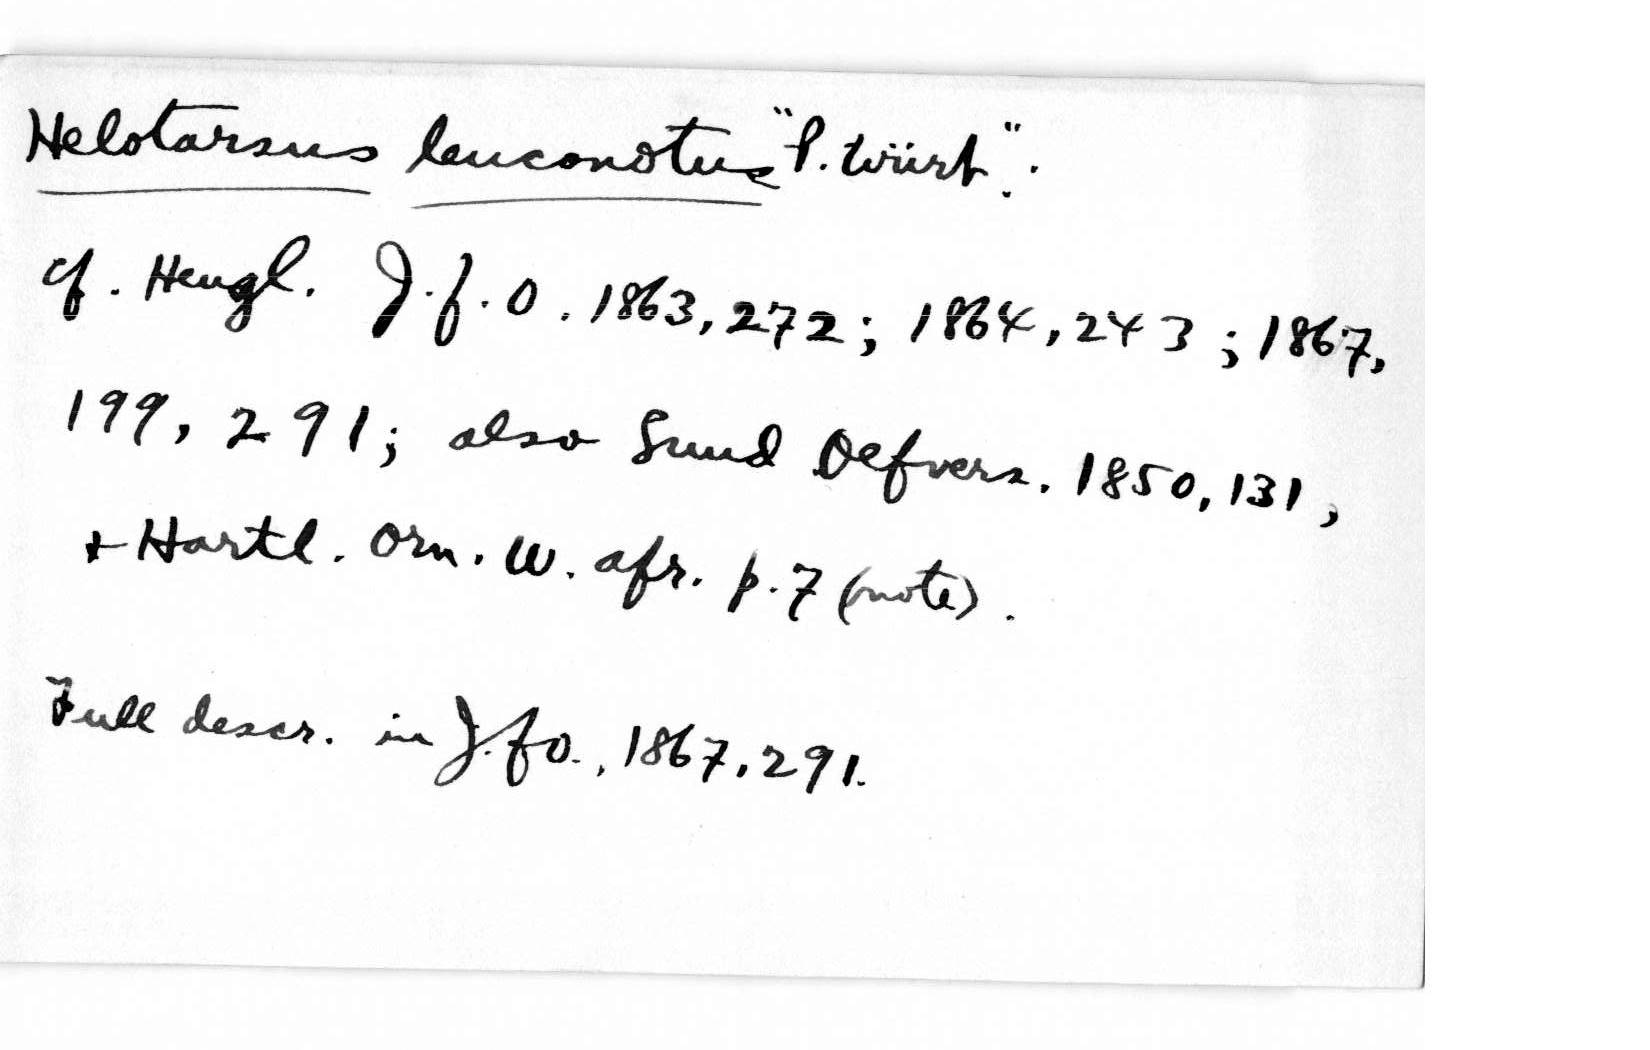 Helotarsus leuconotus "P. Württ".
cf. Heugl. J.f.O. 1863, 272; 1864, 243; 1867,
199, 291; also Sund Oefvers. 1850, 131,
+ Hartl. Orn. W. Afr. p. 7 (note).
Full descr. in J.f.O., 1867, 291.